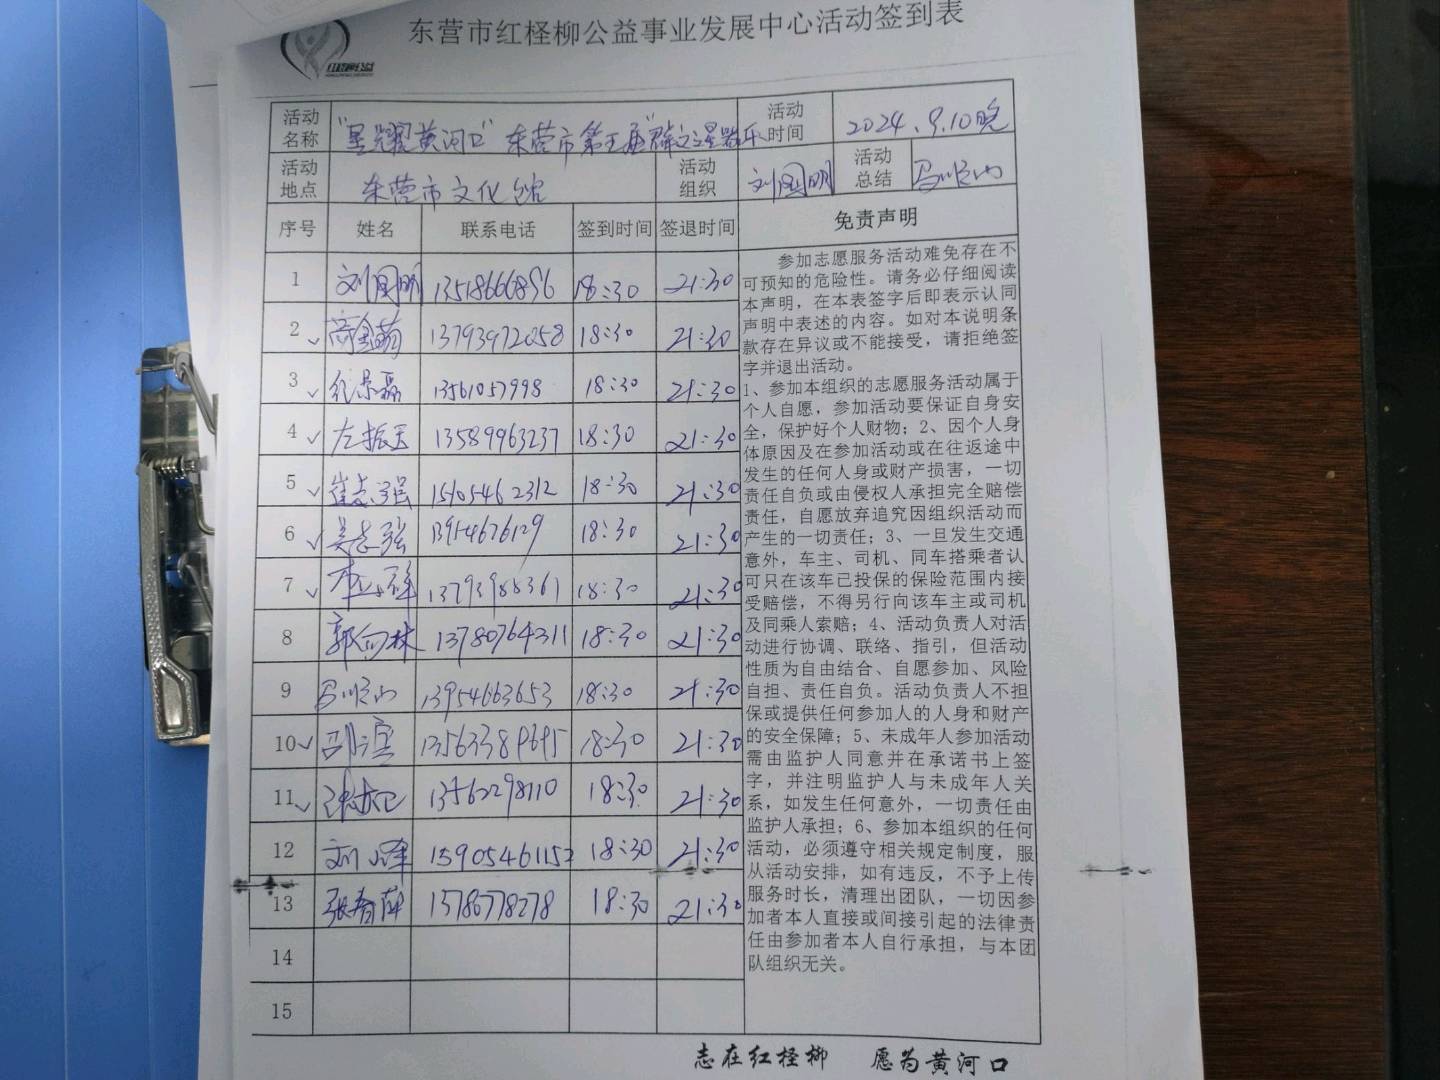 东营市红柽柳公益事业发展中心活动签到表
红柽柳公益
活动名称 "星耀黄河口"东营市第五届"群之星器乐 活动时间 2024.9.10晚
活动地点 东营市文化馆 活动组织 刘国明 活动总结 马顺山
序号 姓名 联系电话 签到时间 签退时间 免责声明
1 刘国明 13518666896 18:30 21:30
2 商金萌 13793972058 18:30 21:30
3 18:30 21:30
4 左振玉 13589963237 18:30 21:30
5 崔志强 15105462312 18:30 21:30
6 吴志强 13954676129 18:30 21:30
7 13793988361 18:30 21:30
8 郭向林 13780764311 18:30 21:30
9 马顺山 13954663653 18:30 21:30
10 18:30 21:30
11 13562298110 18:30 21:30
12 刘 18:30 21:30
13 张春萍 18:30 21:30
14
15
参加志愿服务活动难免存在不
可预知的危险性。请务必仔细阅读
本声明，在本表签字后即表示认同
声明中表述的内容。如对本说明条
款存在异议或不能接受，请拒绝签
字并退出活动。
1、参加本组织的志愿服务活动属于
个人自愿，参加活动要保证自身安
全，保护好个人财物；2、因个人身
体原因及在参加活动或在往返途中
发生的任何人身或财产损害，一切
责任自负或由侵权人承担完全赔偿
责任，自愿放弃追究因组织活动而
产生的一切责任；3、一旦发生交通
意外，车主、司机、同车搭乘者认
可只在该车已投保的保险范围内接
受赔偿，不得另行向该车主或司机
及同乘人索赔；4、活动负责人对活
动进行协调、联络、指引，但活动
性质为自由结合、自愿参加、风险
自担、责任自负。活动负责人不担
保或提供任何参加人的人身和财产
的安全保障；5、未成年人参加活动
需由监护人同意并在承诺书上签
字，并注明监护人与未成年人关
系，如发生任何意外，一切责任由
监护人承担；6、参加本组织的任何
活动，必须遵守相关规定制度，服
从活动安排，如有违反，不予上传
服务时长，清理出团队，一切因参
加者本人直接或间接引起的法律责
任由参加者本人自行承担，与本团
队组织无关。
志在红柽柳 愿为黄河口